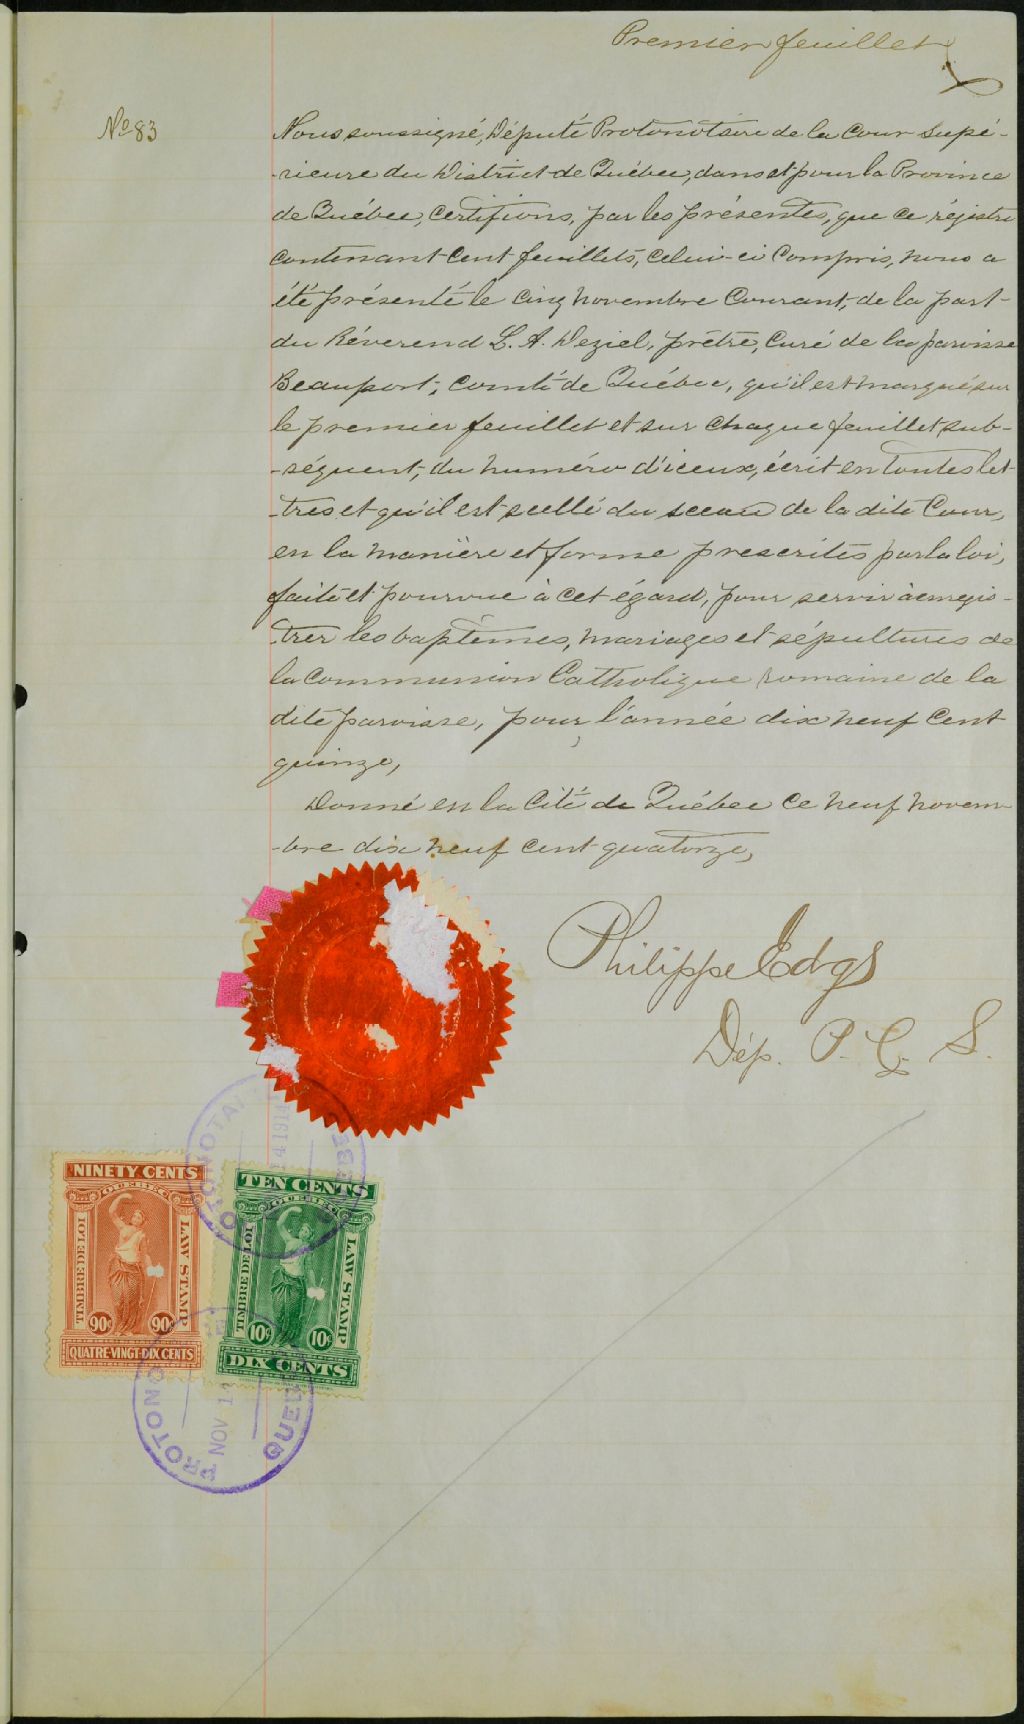 Premier feuillet
No 83
Nous soussigné, Député Protonotaire de la Cour Supé-
-rieure du District de Québec, dans et pour la Province
de Québec, certifions, par les présentes, que ce régistre
contenant cent feuillets, celui-ci compris, nous a
été présenté le cinq novembre courant, de la part
du Révérend L. A. Deziel, prêtre, curé de la paroisse
Beauport, comté de Québec, qu'il est marqué sur
le premier feuillet et sur chaque feuillet sub-
-séquent, du numéro d'iceux, écrit en toutes let
-tres et qu'il est scellé du sceau de la dite Cour,
en la manière et forme prescrites par la loi,
faite et pourvue à cet égard, pour servir à enregis-
-trer les baptêmes, mariages et sépultures de
la Communion Catholique romaine de la
dite paroisse, pour l'année dix neuf cent
quinze,
Donné en la Cité de Québec ce neuf novem
-bre dix neuf cent quatorze,
Philippe
Dép. P. C. S.
NINETY CENTS
QUEBEC
TIMBRE DE LOI
LAW STAMP
90c 90c
QUATRE-VINGT-DIX CENTS
TEN CENTS
QUEBEC
TIMBRE DE LOI
LAW STAMP
10c 10c
DIX CENTS
14 1914
NOV 14
QUEBEC